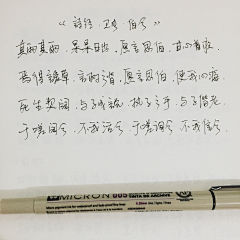 “诗经·卫风·伯兮”
其雨其雨,杲杲日出,愿言思伯,甘心首疾.
焉得谖草,言树之背,愿言思伯,使我心痗.
死生契阔,与子成说.执子之手,与子偕老.
于嗟阔兮,不我活兮.于嗟洵兮,不我信兮.
MICRON 005